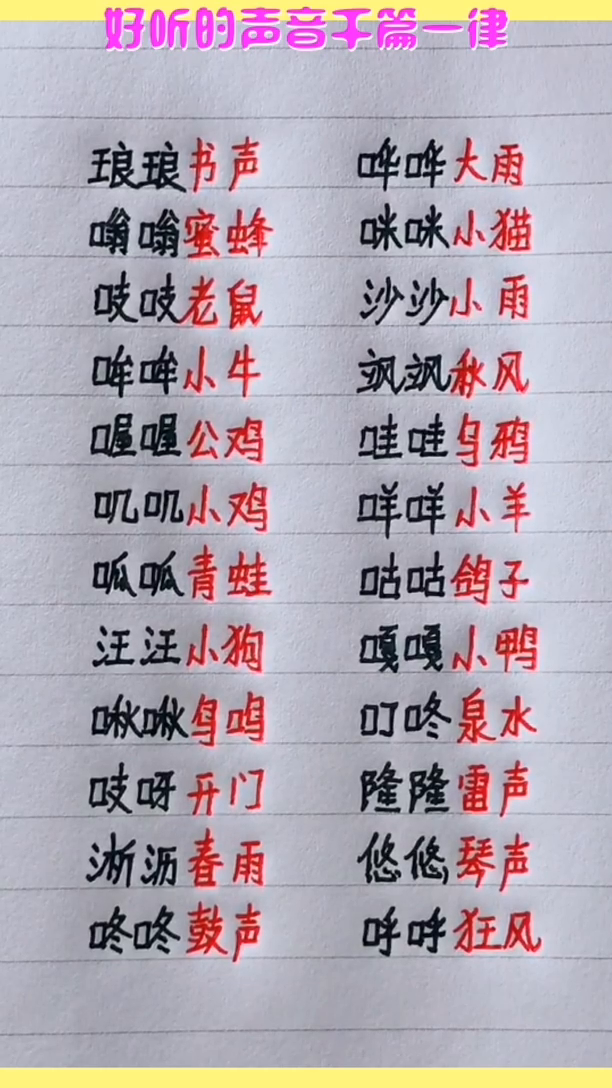 好听的声音千篇一律
琅琅书声 哗哗大雨
嗡嗡蜜蜂 咪咪小猫
吱吱老鼠 沙沙小雨
哞哞小牛 飒飒秋风
喔喔公鸡 哇哇乌鸦
叽叽小鸡 咩咩小羊
呱呱青蛙 咕咕鸽子
汪汪小狗 嘎嘎小鸭
啾啾鸟鸣 叮咚泉水
吱呀开门 隆隆雷声
淅沥春雨 悠悠琴声
咚咚鼓声 呼呼狂风